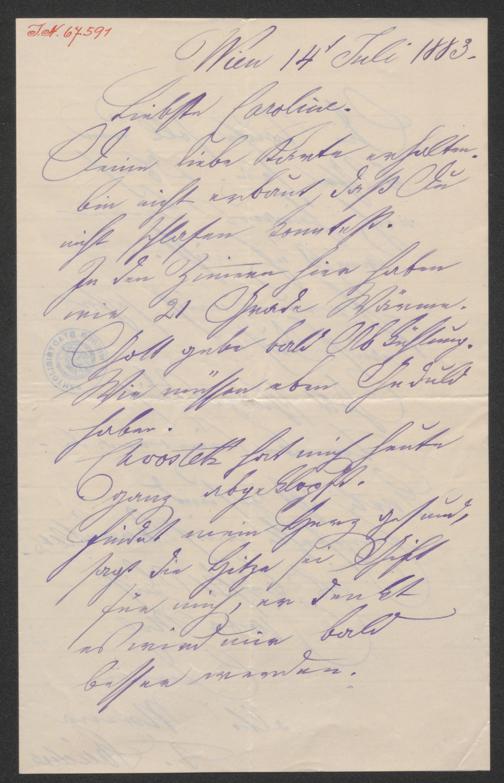 I.N. 67.591
Wien 14t Juli 1883.
Liebste Caroline.
Deine liebe Karte erhalten.
bin nicht erbaut, daß Du
nicht schlafen konntest.
In den Zimmern hier haben
wir 21 Grade Wärme.
Gott gebe bald Abkühlung.
Wir müssen eben Geduld
haben.
Chvostek hat mich heute
ganz abgeklopft.
findet mein Herz gesund,
sagt die Hitze sei Gift
für mich, er denkt
es wird mir bald
besser werden.